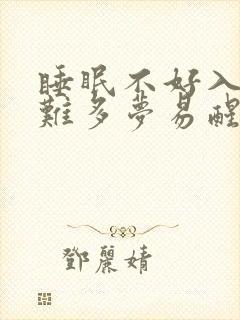 睡眠不好入
難多夢易醒
鄧麗婧